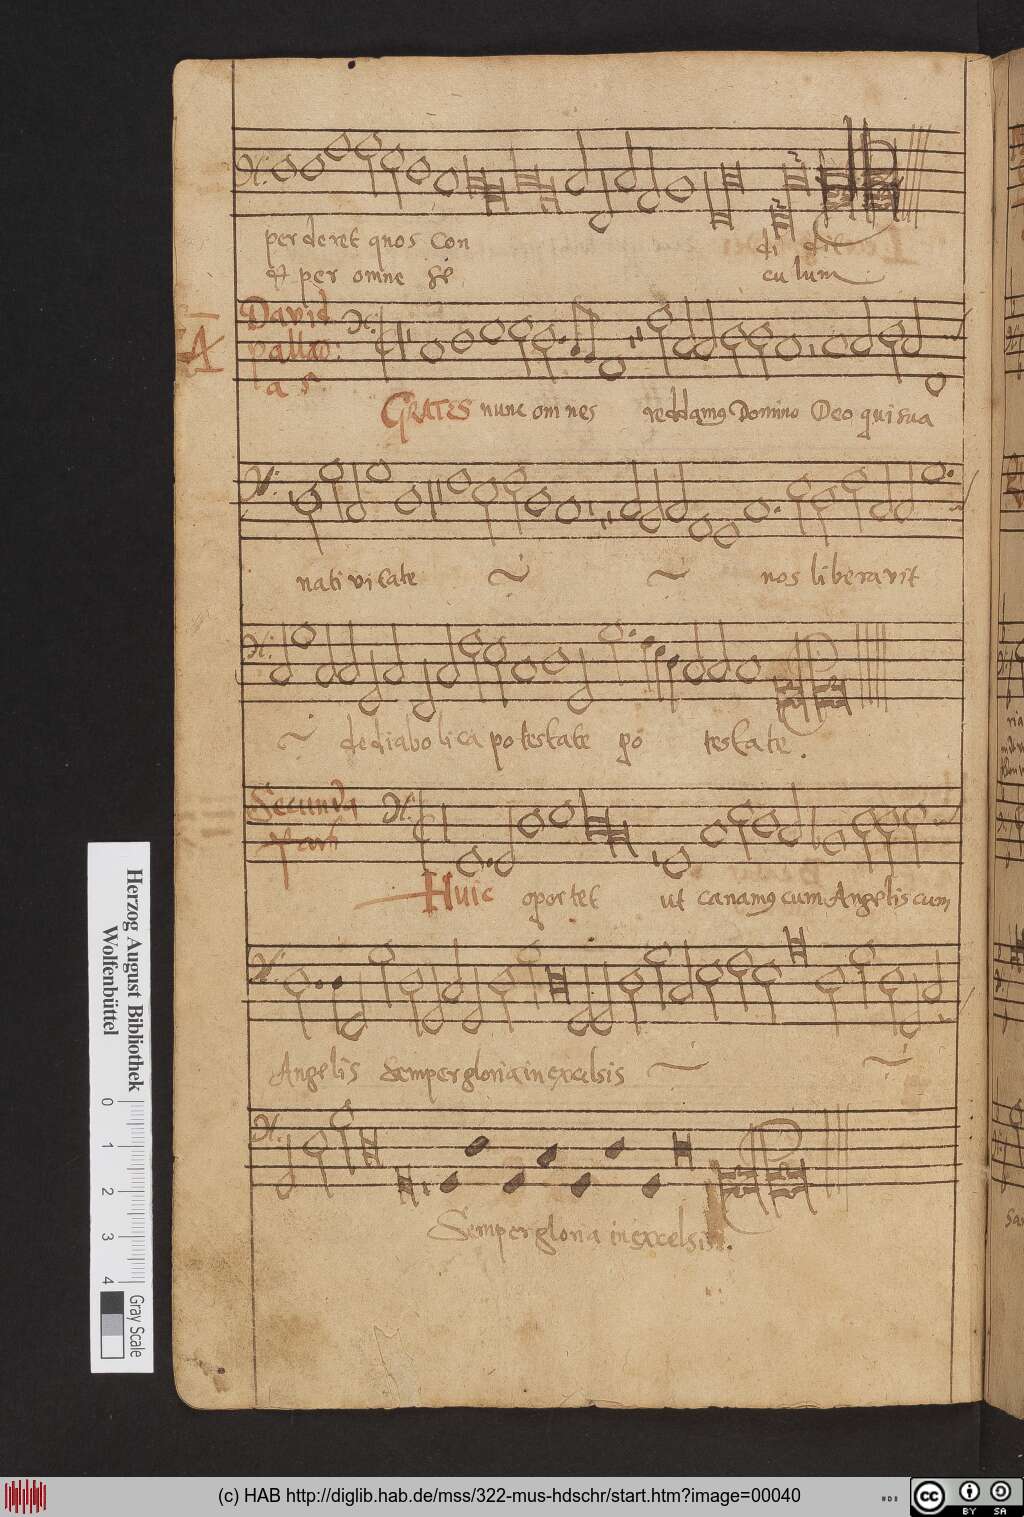 perderet quos Con di dit
et per omne sę culum
David
pallad:
a 5.
A
GRATES nunc omnes reddamus Domino Deo qui sua
nativitate nos liberavit
de diabolica potestate po testate.
Secunda
Pars
Huic oportet ut canamus cum Angelis cum
Angelis semper gloria in excelsis
Semper gloria in excelsis.
Herzog August Bibliothek
Wolfenbüttel
0 1 2 3 4
Gray Scale
(c) HAB http://diglib.hab.de/mss/322-mus-hdschr/start.htm?image=00040
cc BY SA